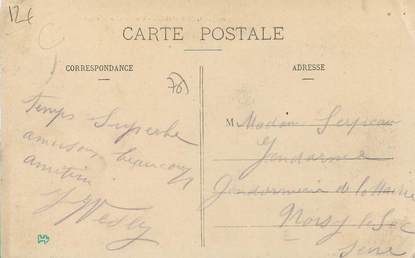 12€
CARTE POSTALE
CORRESPONDANCE
ADRESSE
Temps Superbe
amusons beaucoup
M Madame
Gendarme
Gendarmerie de la Mairie
Noisy le Sec
Seine